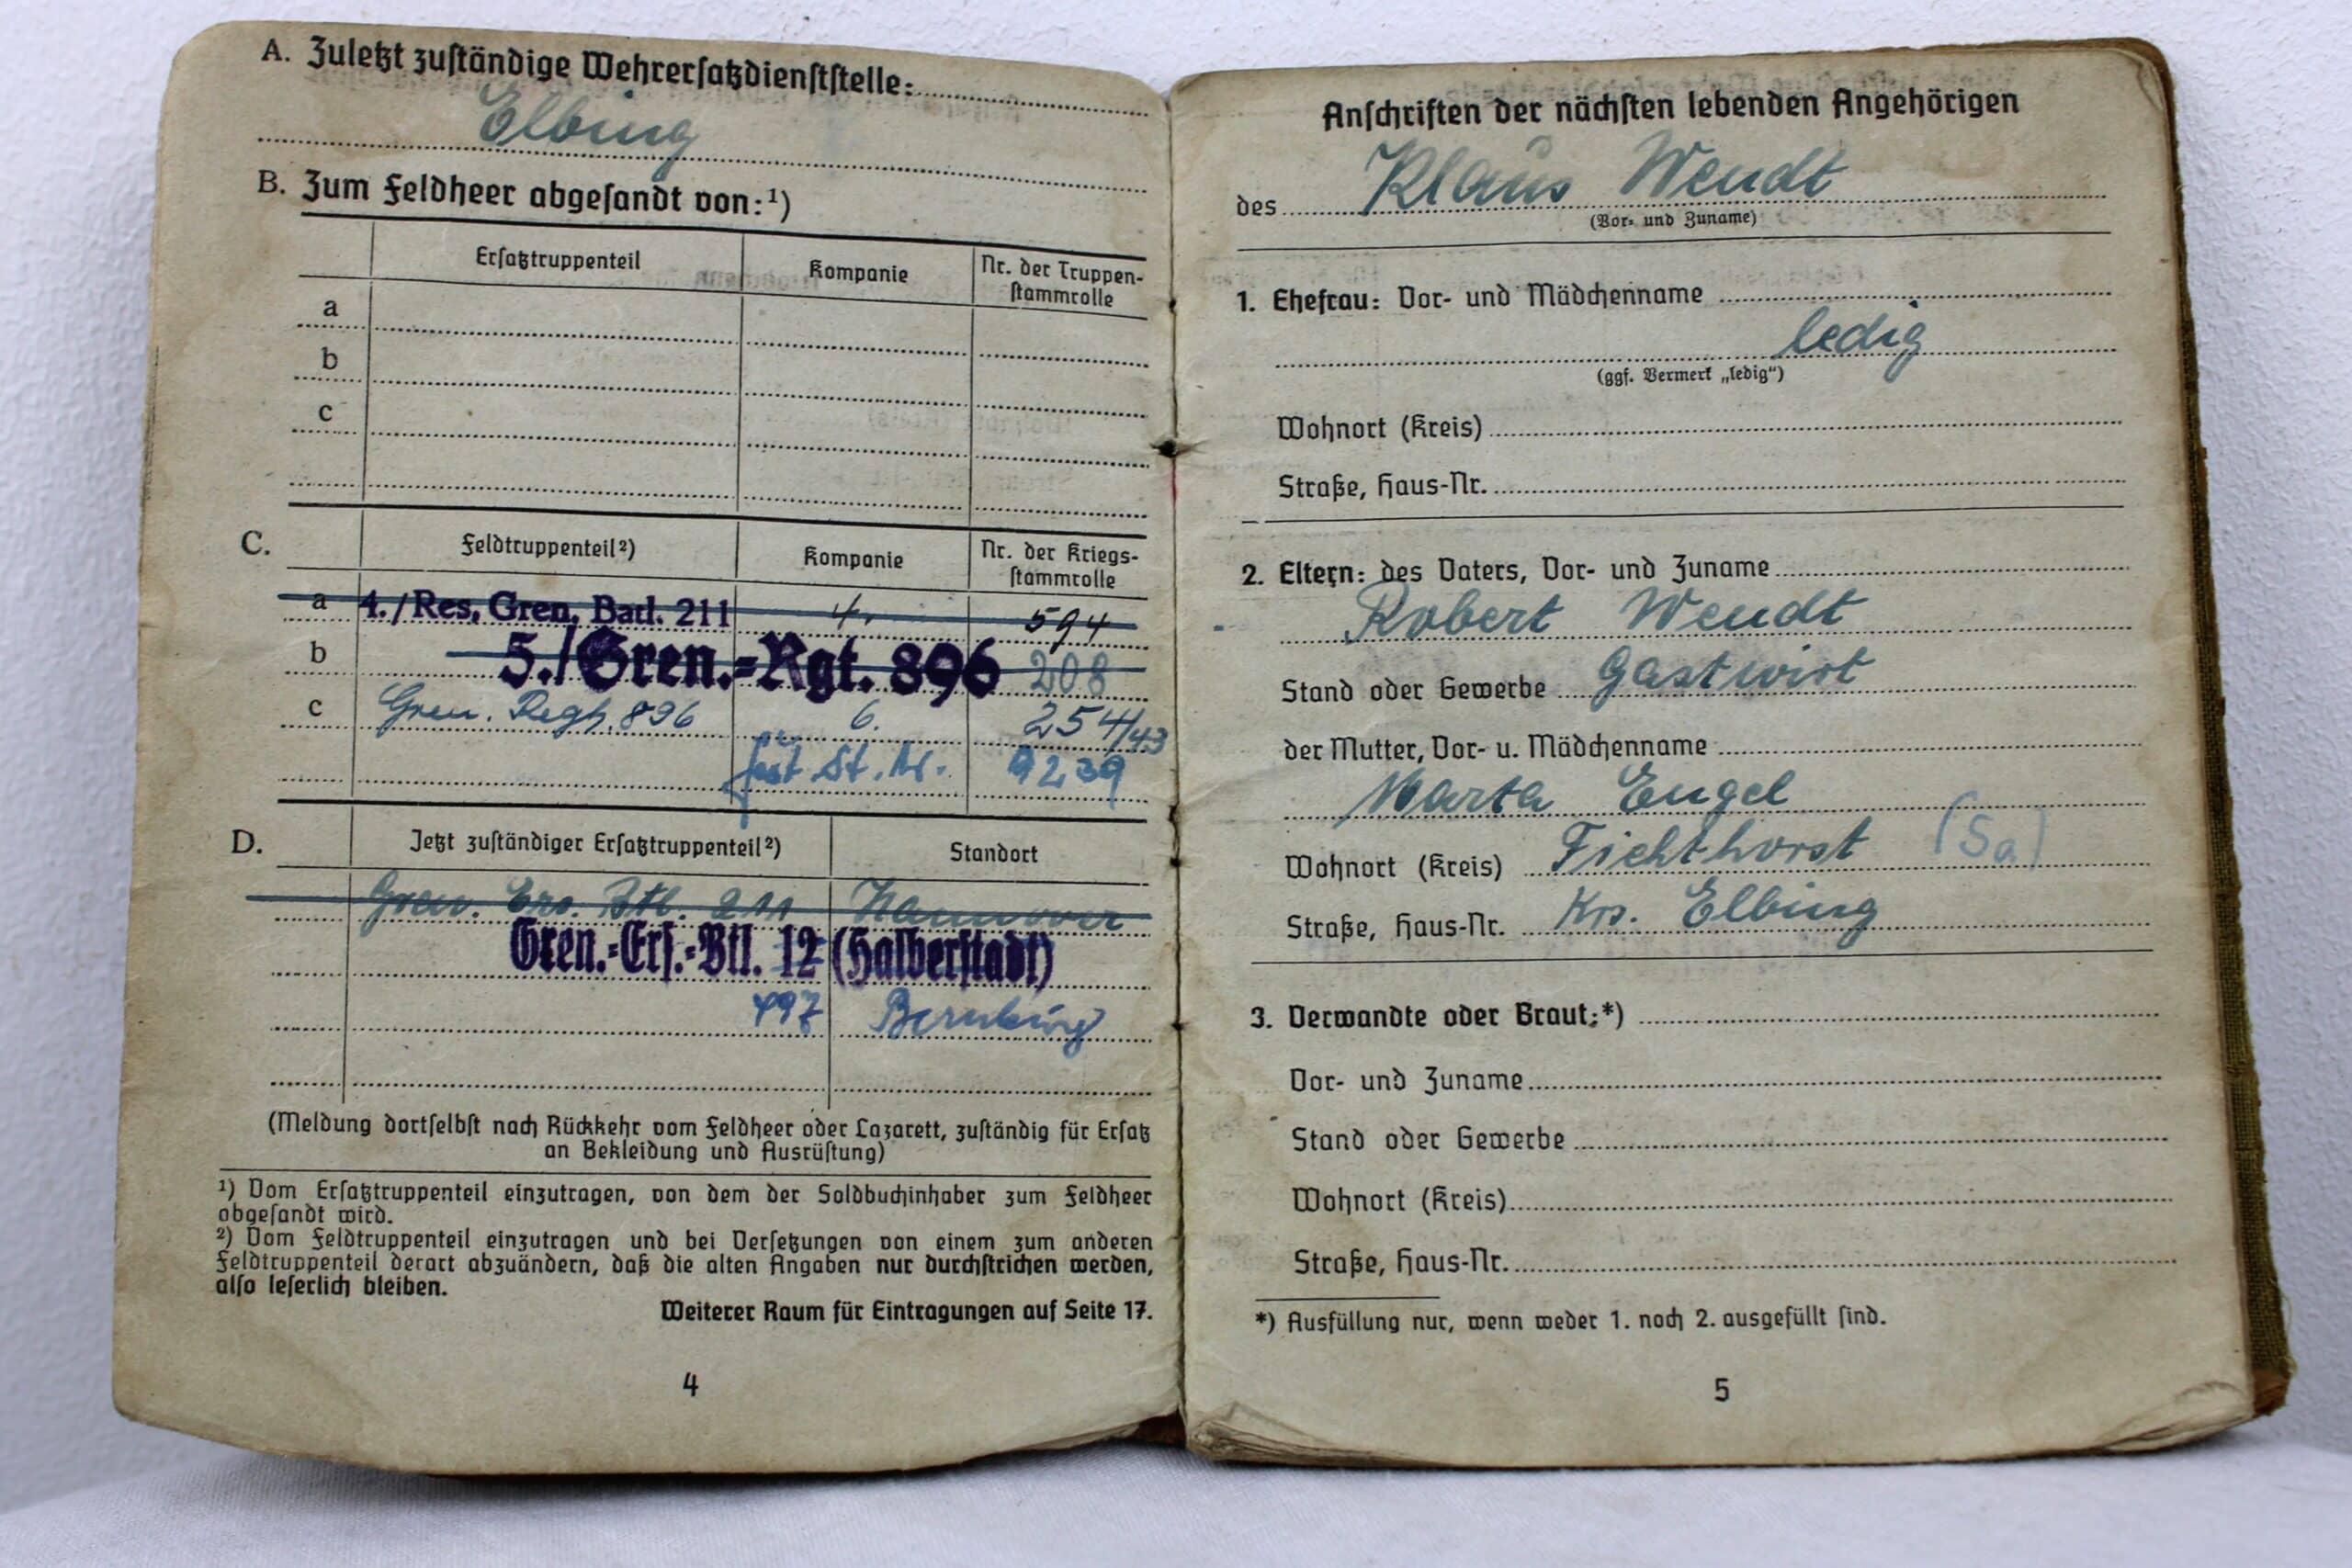 A. Zuletzt zuständige Wehrersatzdienststelle:
Elbing
B. Zum Feldheer abgesandt von:¹)
Ersatztruppenteil Kompanie Nr. der Truppen-
stammrolle
a
b
c
C. Feldtruppenteil²) Kompanie Nr. der Kriegs-
stammrolle
a 4./Res. Gren. Batl. 211 4. 594
b 5./Gren.-Rgt. 896 208
c Gren. Regt. 896 6. 254/43
St. Nr. 9239
D. Jetzt zuständiger Ersatztruppenteil²) Standort
Gren. Ers. Btl. 211 Hannover
Gren.-Ers.-Btl. 12 (Halberstadt)
497 Bernburg
(Meldung dortselbst nach Rückkehr vom Feldheer oder Lazarett, zuständig für Ersatz
an Bekleidung und Ausrüstung)
¹) Vom Ersatztruppenteil einzutragen, von dem der Soldbuchinhaber zum Feldheer
abgesandt wird.
²) Vom Feldtruppenteil einzutragen und bei Versetzungen von einem zum anderen
Feldtruppenteil derart abzuändern, daß die alten Angaben nur durchstrichen werden,
also leserlich bleiben.
Weiterer Raum für Eintragungen auf Seite 17.
4
Anschriften der nächsten lebenden Angehörigen
des Klaus Wendt
(Vor- und Zuname)
1. Ehefrau: Vor- und Mädchenname
ledig
(ggf. Vermerk „ledig“)
Wohnort (Kreis)
Straße, Haus-Nr.
2. Eltern: des Vaters, Vor- und Zuname
Robert Wendt
Stand oder Gewerbe Gastwirt
der Mutter, Vor- u. Mädchenname
Marta Engel
Wohnort (Kreis) Fichthorst (Sa)
Straße, Haus-Nr. Krs. Elbing
3. Verwandte oder Braut:*)
Vor- und Zuname
Stand oder Gewerbe
Wohnort (Kreis)
Straße, Haus-Nr.
*) Ausfüllung nur, wenn weder 1. noch 2. ausgefüllt sind.
5